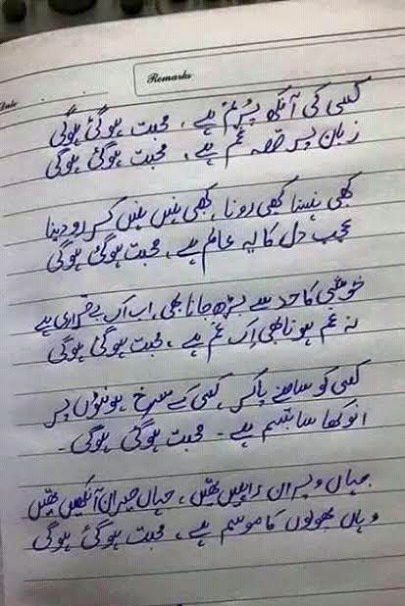 Remarks
Date
کسی کی آنکھ پرنم ہے ، محبت ہو گئی ہو گی
زبان پر قصہ غم ہے ، محبت ہو گئی ہو گی
کبھی ہنسنا کبھی رونا ، کبھی ہنس ہنس کر رو دینا
عجب دل کا یہ عالم ہے ، محبت ہو گئی ہو گی
خوشی کا حد سے بڑھ جانا بھی ، اب اک بے قراری ہے
نہ غم ہونا بھی اک غم ہے ، محبت ہو گئی ہو گی
کسی کو سامنے پا کر ، کسی کے سرخ ہونٹوں پر
انوکھا سا تبسم ہے ۔ محبت ہو گئی ہو گی ۔
جہاں ویران راہیں تھیں ، جہاں حیران آنکھیں تھیں
وہاں پھولوں کا موسم ہے ، محبت ہو گئی ہو گی